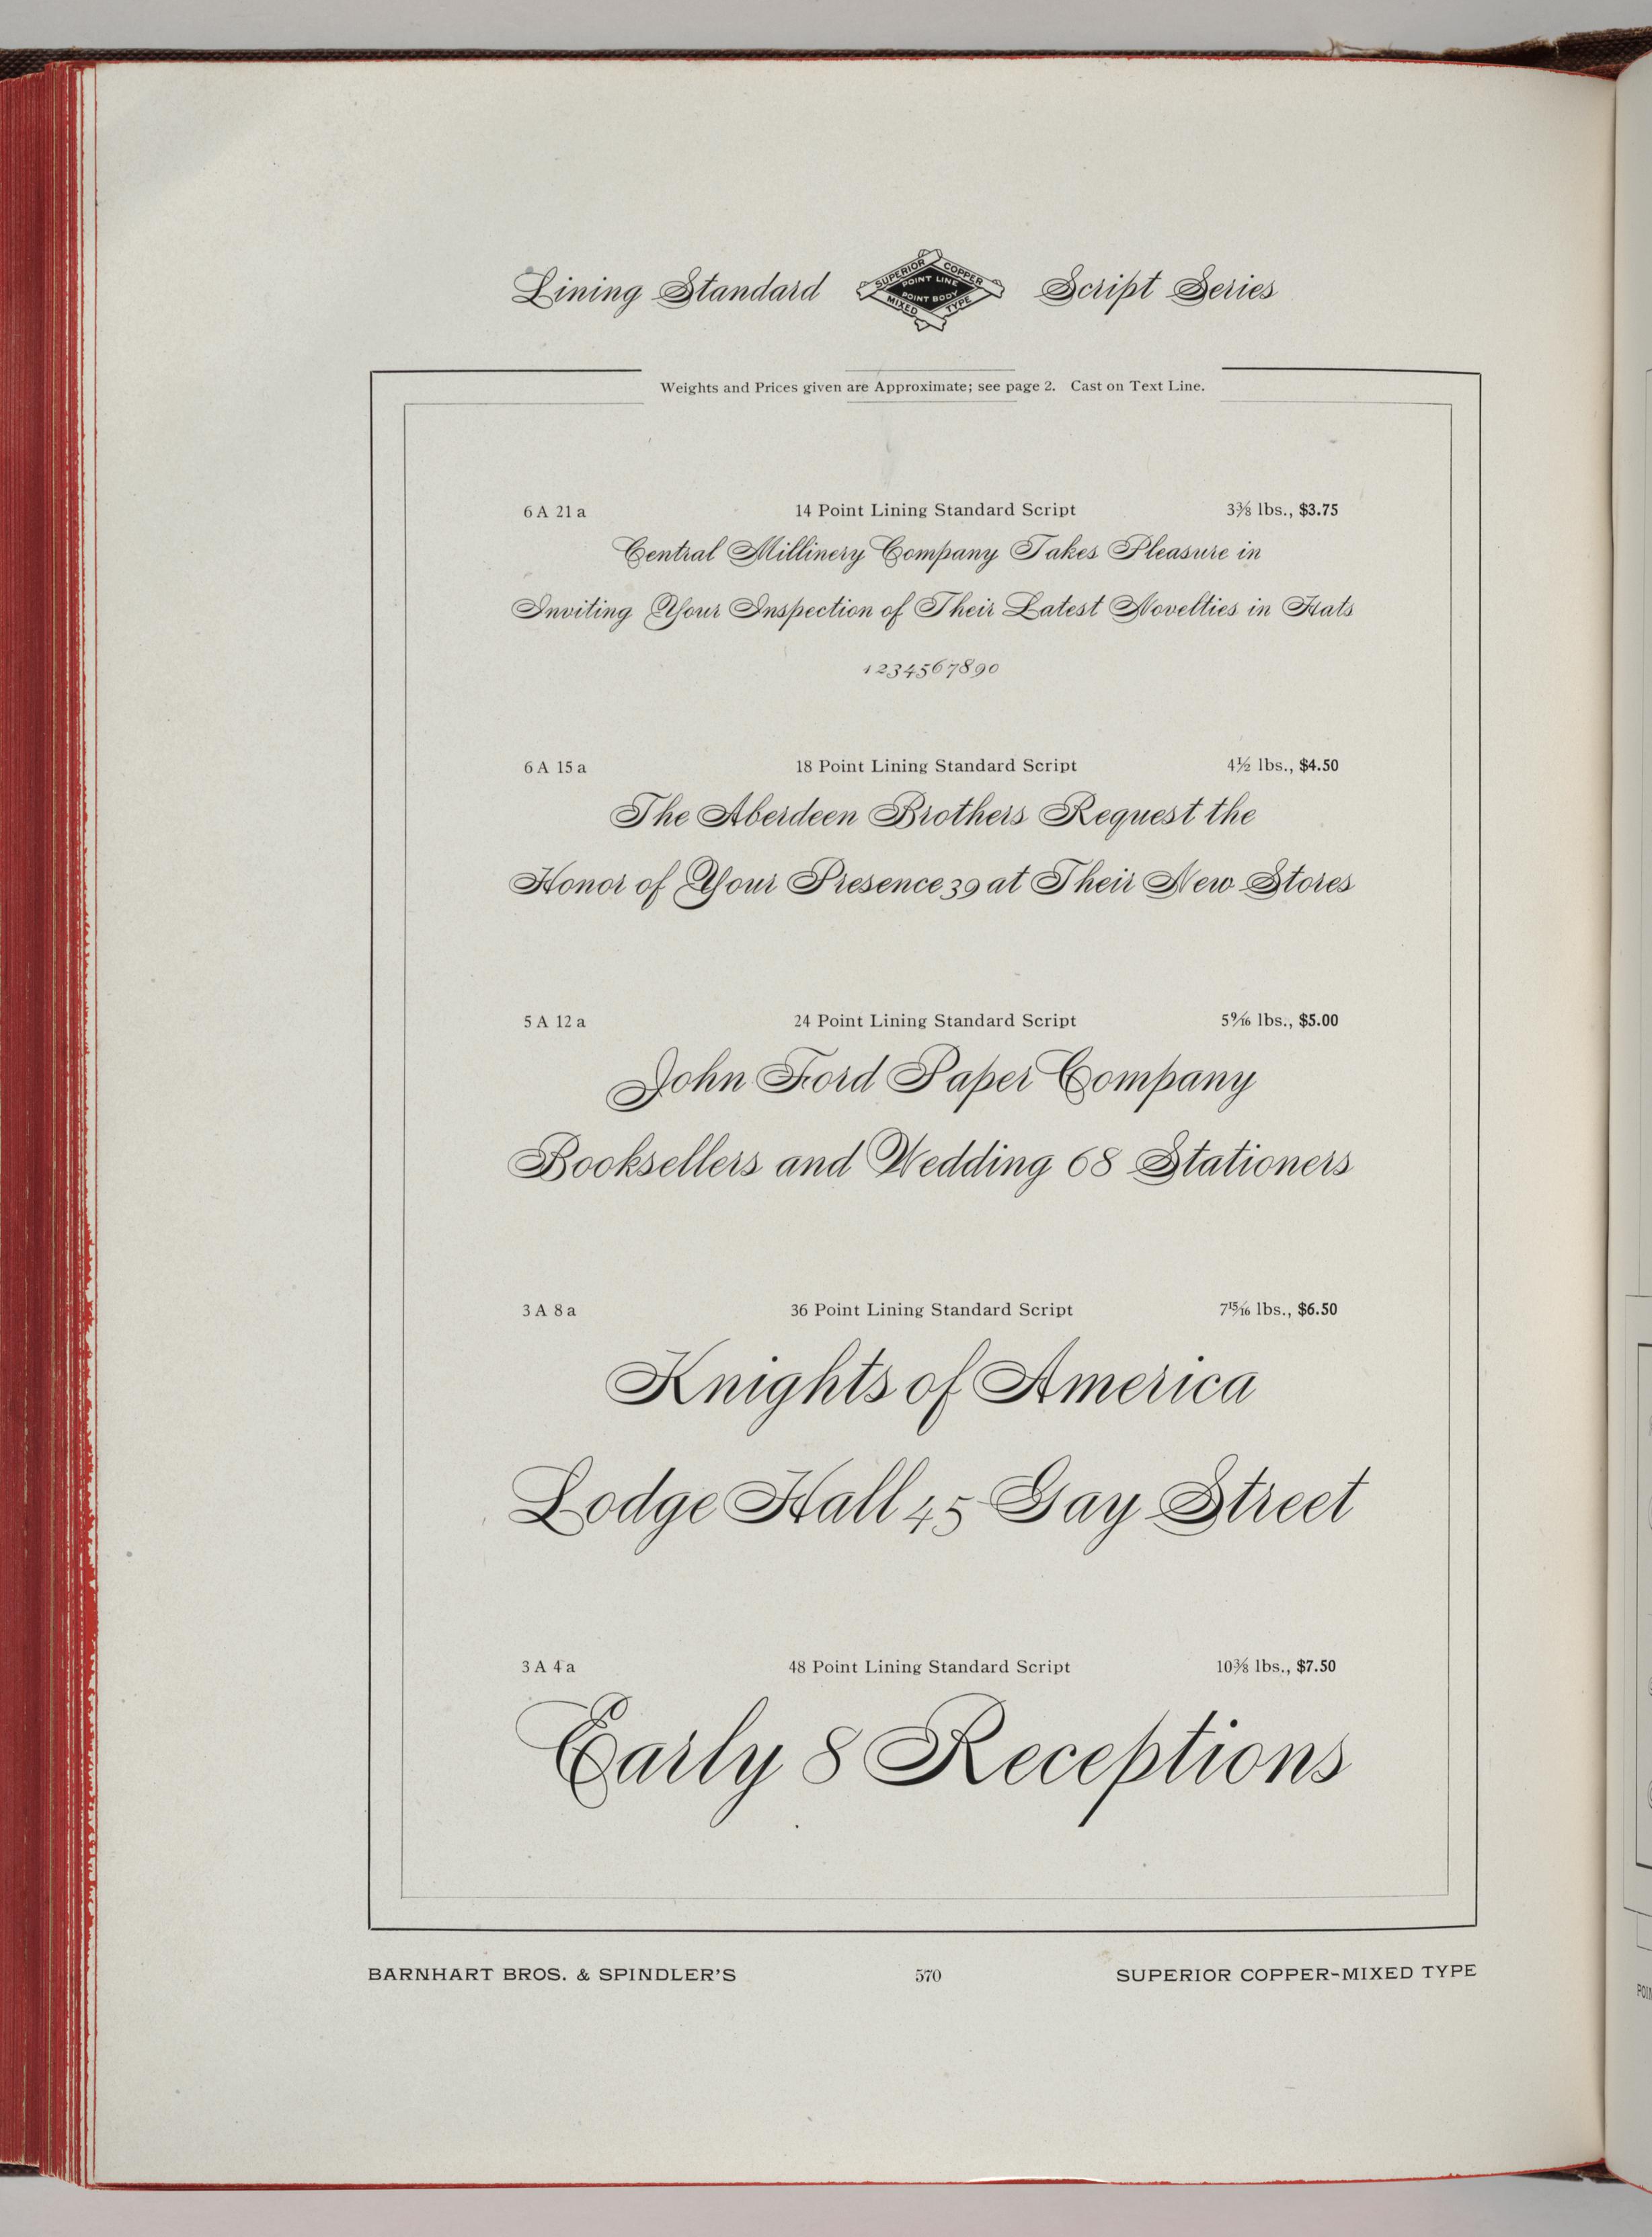 Lining Standard SUPERIOR COPPER MIXED TYPE POINT LINE POINT BODY Script Series
Weights and Prices given are Approximate; see page 2. Cast on Text Line.
6 A 21 a 14 Point Lining Standard Script 3⅜ lbs., $3.75
Central Millinery Company Takes Pleasure in
Inviting Your Inspection of Their Latest Novelties in Hats
1234567890
6 A 15 a 18 Point Lining Standard Script 4½ lbs., $4.50
The Aberdeen Brothers Request the
Honor of Your Presence 39 at Their New Stores
5 A 12 a 24 Point Lining Standard Script 5 9/16 lbs., $5.00
John Ford Paper Company
Booksellers and Wedding 68 Stationers
3 A 8 a 36 Point Lining Standard Script 7 15/16 lbs., $6.50
Knights of America
Lodge Hall 45 Gay Street
3 A 4 a 48 Point Lining Standard Script 10⅜ lbs., $7.50
Early 8 Receptions
BARNHART BROS. & SPINDLER'S 570 SUPERIOR COPPER-MIXED TYPE